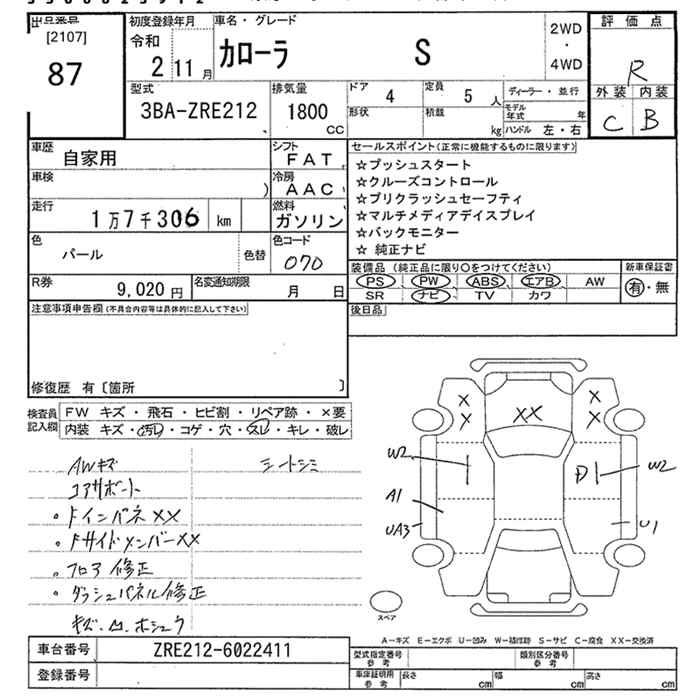 出品番号
[2107]
87
初度登録年月
令和
2 11月
車名・グレード
カローラ S
2WD
・
4WD
評価点
R
外装 内装
C B
型式
3BA-ZRE212
排気量
1800
CC
ドア 4
定員 5 人
形状
積載 kg
ディーラー・並行
モデル年式 年
ハンドル 左・右
車歴
自家用
シフト
FAT
車検
冷房
AAC
走行
1万7千306 km
燃料
ガソリン
色
パール
色替
色コード
070
R券
9,020円
名変通知期限
月 日
セールスポイント(正常に機能するものに限ります)
☆プッシュスタート
☆クルーズコントロール
☆プリクラッシュセーフティ
☆マルチメディアデイスプレイ
☆バックモニター
☆ 純正ナビ
装備品 (純正品に限り○をつけてください)
PS PW ABS エアB AW
SR ナビ TV カワ
新車保証書
有・無
後日品
注意事項申告欄(不具合内容等は具体的に記入して下さい)
修復歴 有〔箇所 〕
検査員記入欄
FW キズ・飛石・ヒビ割・リペア跡・×要
内装 キズ・汚レ・コゲ・穴・スレ・キレ・破レ
AWキズ シートシミ
コアサポート
・ドインパネXX
・ドサイドメンバーXX
・フロア修正
・ダッシュパネル修正
X X
X X
XX
W2
W2
A1
UA3
U1
スペア
A－キズ E－エクボ U－凹み W－補修跡 S－サビ C－腐食 XX－交換済
車台番号 ZRE212-6022411
登録番号
型式指定番号
参考
類別区分番号
参考
車庫証明用
参考
長さ cm
幅 cm
高さ cm